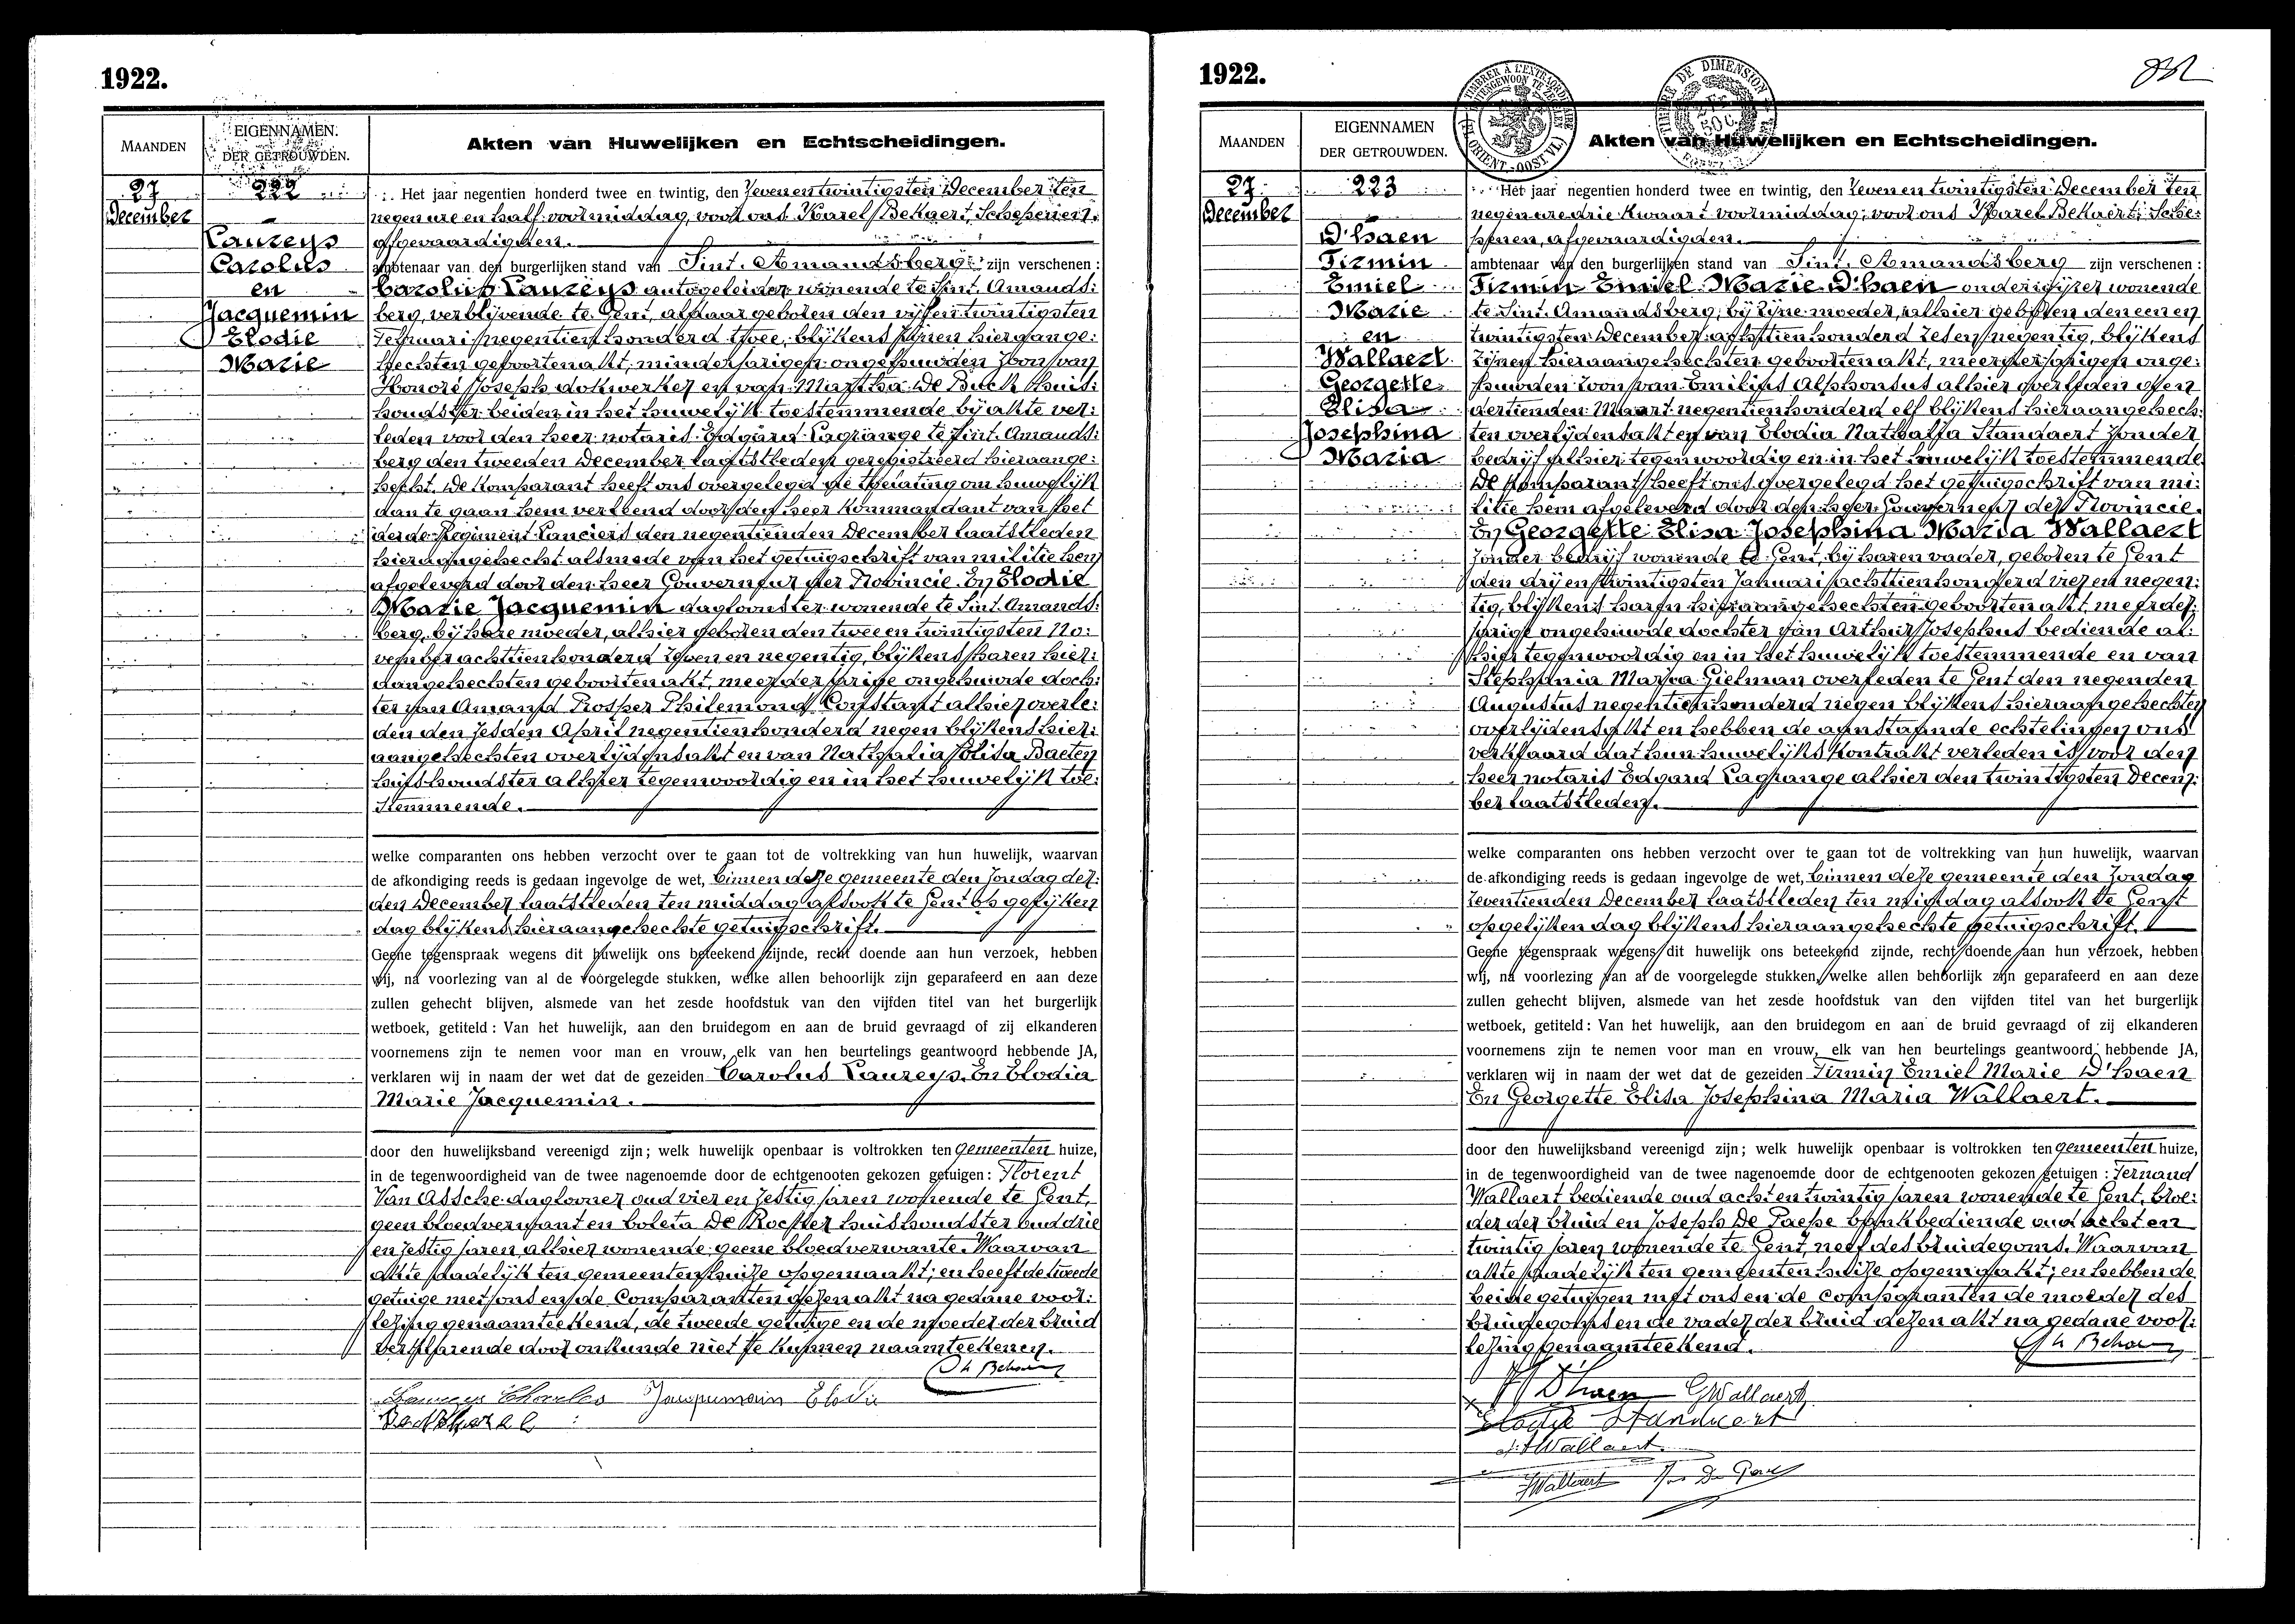 1922.
MAANDEN
EIGENNAMEN.
DER GETROUWDEN.
Akten van Huwelijken en Echtscheidingen.
27
December
222
Laureys
Carolus
en
Jacquemin
Elodie
Marie
Het jaar negentien honderd twee en twintig, den zeven en twintigsten December ten
negen ure en half voormiddag, voor ons Karel Bekaert, Schepenen,
afgevaardigden.
ambtenaar van den burgerlijken stand van Sint. Amandsberg zijn verschenen :
Carolus Laureys autogeleider wonende te Sint. Amands:
berg, verblijvende te Gent, aldaar geboren den vijf en twintigsten
Februari negentien honderd twee, blijkens zijnen hieraange:
hechten geboortenakt, minderjarigen ongehuwden zoon van
Honoré Joseph dokwerker en van Martha De Buck huis:
houdster beiden in het huwelijk toestemmende bij akte ver:
leden voor den heer notaris Edgard Lagrange te Sint. Amands:
berg den tweeden December laatstleden geregistreerd hieraange:
hecht. De komparant heeft ons overgelegd de machting om huwelijk
aan te gaan hem verleend door den heer Kommandant van het
derde Regiment Lanciers den negentienden December laatstleden
hieraangehecht alsmede van het getuigschrift van militie hem
afgeleverd door den heer Gouverneur der Provincie. En Elodie
Marie Jacquemin dagloonster wonende te Sint. Amands:
berg, bij hare moeder, alhier geboren den twee en twintigsten No:
vember achttien honderd zeven en negentig, blijkens haren hier:
aangehechten geboortenakt, meerderjarige ongehuwde doch:
ter van Amand Prosper Philemond Constant alhier overle:
den den zesden April negentien honderd negen blijkens hier:
aangehechten overlijdensakt en van Nathalia Elisa Baeten
huishoudster alhier tegenwoordig en in het huwelijk toe:
stemmende.
welke comparanten ons hebben verzocht over te gaan tot de voltrekking van hun huwelijk, waarvan
de afkondiging reeds is gedaan ingevolge de wet, binnen deze gemeente den zondag der:
den December laatstleden ten middag alsook te Gent op gelijken
dag blijkens hieraangehechte getuigschrift.
Geene tegenspraak wegens dit huwelijk ons beteekend zijnde, recht doende aan hun verzoek, hebben
wij, na voorlezing van al de voorgelegde stukken, welke allen behoorlijk zijn geparafeerd en aan deze
zullen gehecht blijven, alsmede van het zesde hoofdstuk van den vijfden titel van het burgerlijk
wetboek, getiteld : Van het huwelijk, aan den bruidegom en aan de bruid gevraagd of zij elkanderen
voornemens zijn te nemen voor man en vrouw, elk van hen beurtelings geantwoord hebbende JA,
verklaren wij in naam der wet dat de gezeiden Carolus Laureys. En Elodia
Marie Jacquemin.
door den huwelijksband vereenigd zijn ; welk huwelijk openbaar is voltrokken ten gemeenten huize,
in de tegenwoordigheid van de twee nagenoemde door de echtgenooten gekozen getuigen : Florent
Van Assche daglooner oud vier en zestig jaren wonende te Gent,
geen bloedverwant en Coleta De Rocker huishoudster oud drie
en zestig jaren, alhier wonende geene bloedverwante. Waarvan
akte dadelijk ten gemeentenhuize opgemaakt; en heeft de tweede
getuige met ons en de Comparanten dezen akt na gedane voor:
lezing genaamteekend, de tweede getuige en de moeder der bruid
verklarende door onkunde niet te kunnen naamteekenen.
Laureys Charles Jacquemain Elodie
1922.
MAANDEN
EIGENNAMEN
DER GETROUWDEN.
Akten van Huwelijken en Echtscheidingen.
27
December
223
D'haen
Firmin
Emiel
Marie
en
Wallaert
Georgette
Elisa
Josephina
Maria
Het jaar negentien honderd twee en twintig, den zeven en twintigsten December ten
negen ure drie kwaart voormiddag, voor ons Karel Bekaert, Sche:
penen, afgevaardigden.
ambtenaar van den burgerlijken stand van Sint. Amandsberg zijn verschenen :
Firmin Emiel Marie D'haen onderwijzer wonende
te Sint. Amandsberg, bij zijne moeder, alhier geboren den een en
twintigsten December achttien honderd zes en negentig, blijkens
zijnen hieraangehechten geboortenakt, meerderjarigen onge:
huwden zoon van Emilius Alphonsus alhier overleden den
dertienden Maart negentien honderd elf blijkens hieraangehech:
ten overlijdensakt en van Elodia Nathalia Standaert zonder
bedrijf alhier tegenwoordig en in het huwelijk toestemmende
De komparant heeft ons overgelegd het getuigschrift van mi:
litie hem afgeleverd door den heer Gouverneur der Provincie.
En Georgette Elisa Josephina Maria Wallaert
zonder bedrijf wonende te Gent, bij haren vader, geboren te Gent
den drij en twintigsten Januari achttien honderd vier en negen:
tig, blijkens haren hieraangehechten geboortenakt, meerder:
jarige ongehuwde dochter van Arthur Josephus bediende al:
hier tegenwoordig en in het huwelijk toestemmende en van
Stephania Maria Gielman overleden te Gent den negenden
Augustus negentien honderd negen blijkens hieraangehechten
overlijdensakt en hebben de aanstaande echtelingen ons
verklaard dat hun huwelijks kontrakt verleden is voor den
heer notaris Edgard Lagrange alhier den twintigsten Decem:
ber laatstleden.
welke comparanten ons hebben verzocht over te gaan tot de voltrekking van hun huwelijk, waarvan
de afkondiging reeds is gedaan ingevolge de wet, binnen deze gemeente den zondag
zeventienden December laatstleden ten middag alsook te Gent
op gelijken dag blijkens hieraangehechte getuigschrift.
Geene tegenspraak wegens dit huwelijk ons beteekend zijnde, recht doende aan hun verzoek, hebben
wij, na voorlezing van al de voorgelegde stukken, welke allen behoorlijk zijn geparafeerd en aan deze
zullen gehecht blijven, alsmede van het zesde hoofdstuk van den vijfden titel van het burgerlijk
wetboek, getiteld : Van het huwelijk, aan den bruidegom en aan de bruid gevraagd of zij elkanderen
voornemens zijn te nemen voor man en vrouw, elk van hen beurtelings geantwoord hebbende JA,
verklaren wij in naam der wet dat de gezeiden Firmin Emiel Marie D'haen
En Georgette Elisa Josephina Maria Wallaert.
door den huwelijksband vereenigd zijn ; welk huwelijk openbaar is voltrokken ten gemeenten huize,
in de tegenwoordigheid van de twee nagenoemde door de echtgenooten gekozen getuigen : Fernand
Wallaert bediende oud acht en twintig jaren wonende te Gent, broe:
der der bruid en Joseph De Paepe bankbediende oud acht en
twintig jaren wonende te Gent, neef des bruidegoms. Waarvan
akte dadelijk ten gemeentenhuize opgemaakt; en hebben de
beide getuigen met ons en de comparanten de moeder des
bruidegoms en de vader der bruid dezen akt na gedane voor:
lezing genaamteekend.
D'haen GWallaert
Elodie Standaert
Wallaert
FWallaert Jos De Paepe